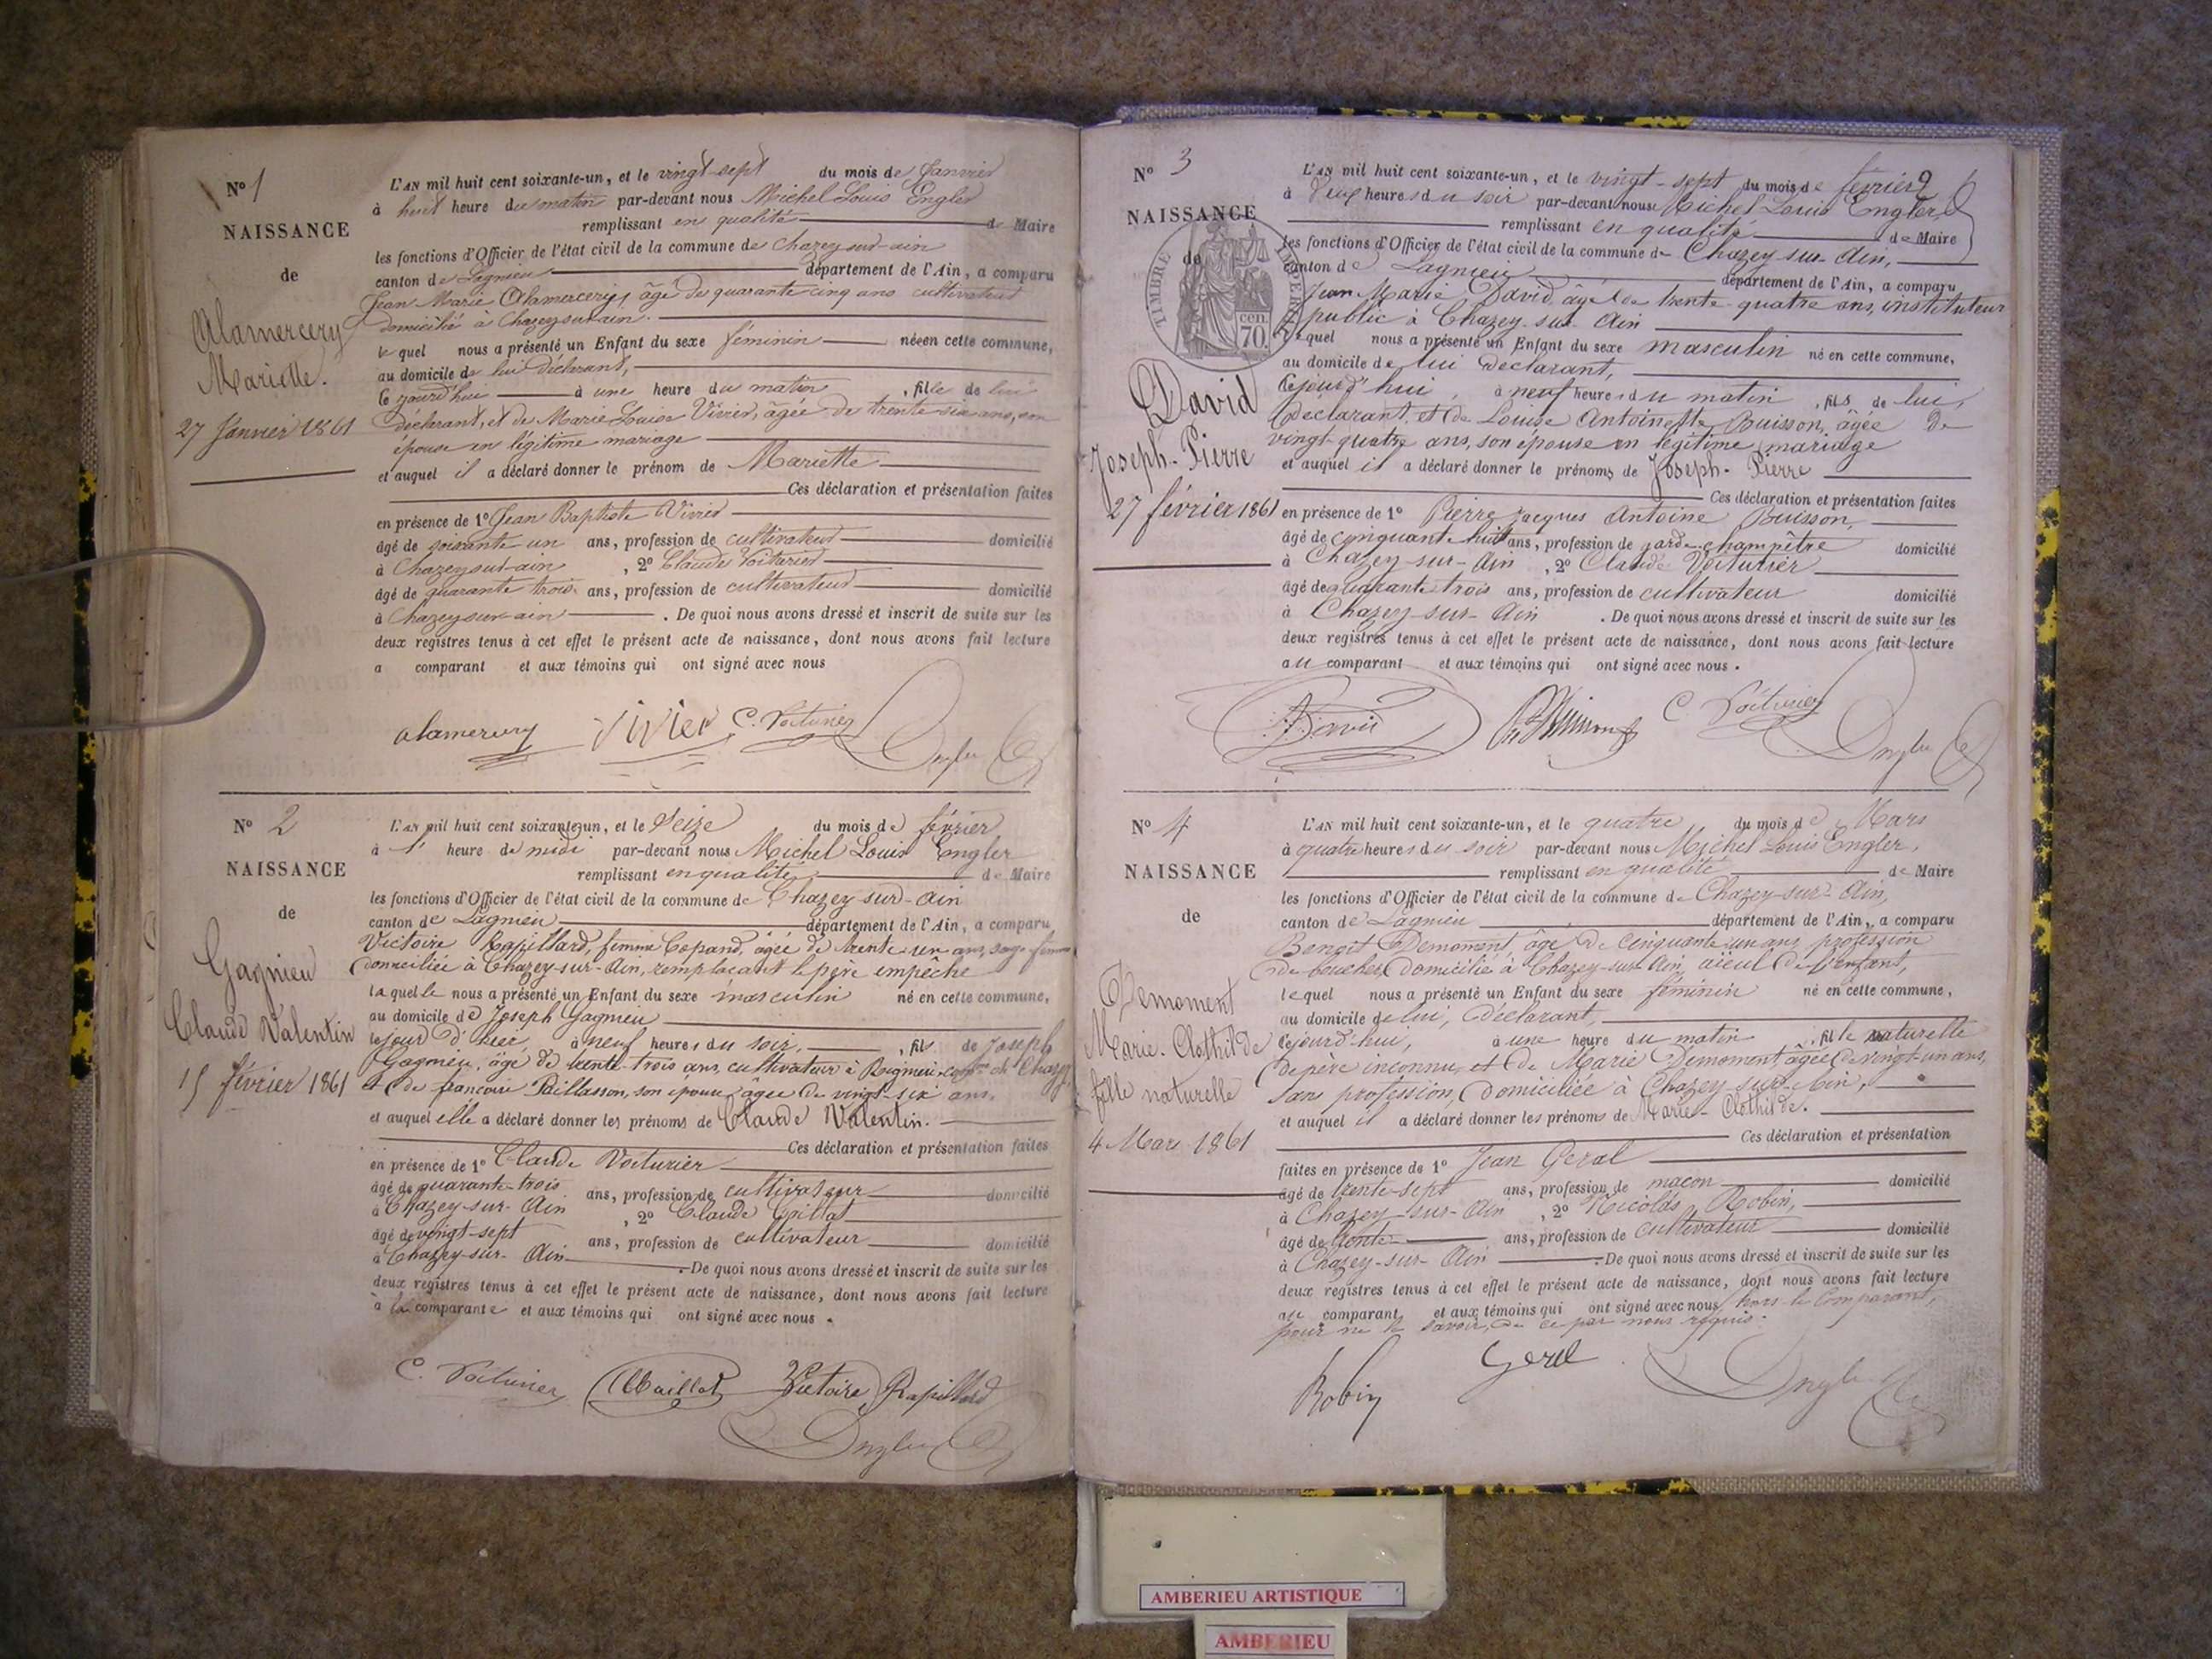 N° 1
NAISSANCE
de
Alamercery
Mariette.
27 Janvier 1861
L'AN mil huit cent soixante-un, et le vingt-sept du mois de Janvier
à huit heure du matin par-devant nous Michel Louis Engler
remplissant en qualité de Maire
les fonctions d'Officier de l'état civil de la commune de Chazey sur-ain
canton de Lagnieu département de l'Ain, a comparu
Jean Marie Alamercery, âgé de quarante cinq ans cultivateur
domicilié à Chazey sur ain.
lequel nous a présenté un Enfant du sexe féminin née en cette commune,
au domicile de lui déclarant,
ce jourd'hui à une heure du matin, fille de lui
déclarant, et de Marie Louise Vivier, âgée de trente six ans, son
épouse en légitime mariage
et auquel il a déclaré donner le prénom de Mariette
Ces déclaration et présentation faites
en présence de 1° Jean Baptiste Vivier
âgé de soixante un ans, profession de cultivateur domicilié
à Chazey sur-ain, 2° Claude Voiturier
âgé de quarante trois ans, profession de cultivateur domicilié
à Chazey sur ain. De quoi nous avons dressé et inscrit de suite sur les
deux registres tenus à cet effet le présent acte de naissance, dont nous avons fait lecture
a comparant et aux témoins qui ont signé avec nous
alamercery Vivier C. Voiturier Engler
N° 2
NAISSANCE
de
Gagnieu
Claude Valentin
15 février 1861
L'AN mil huit cent soixante-un, et le Seize du mois de février
à 1' heure de midi par-devant nous Michel Louis Engler
remplissant en qualité de Maire
les fonctions d'Officier de l'état civil de la commune de Chazey-sur-Ain
canton de Lagnieu département de l'Ain, a comparu
Victoire Rapillard, femme Copand, âgée de trente un ans, sage-femme
domiciliée à Chazey-sur-Ain, remplaçant le père empêché
laquelle nous a présenté un Enfant du sexe masculin né en cette commune,
au domicile de Joseph Gagnieu
le jour d'hier, à neuf heures du soir, fils de Joseph
Gagnieu, âgé de trente-trois ans, cultivateur à Rognieu, de Chazey
et de françoise Paillasson, son épouse âgée de vingt-six ans.
et auquel elle a déclaré donner les prénoms de Claude Valentin.
Ces déclaration et présentation faites
en présence de 1° Claude Voiturier
âgé de quarante-trois ans, profession de cultivateur domicilié
à Chazey-sur-Ain, 2° Claude
âgé de vingt-sept ans, profession de cultivateur domicilié
à Chazey-sur-Ain. De quoi nous avons dressé et inscrit de suite sur les
deux registres tenus à cet effet le présent acte de naissance, dont nous avons fait lecture
à la comparante et aux témoins qui ont signé avec nous.
C. Voiturier Victoire Rapillard
Engler
N° 3
NAISSANCE
de
TIMBRE IMPERIAL
70 cen.
David
Joseph-Pierre
27 février 1861
L'AN mil huit cent soixante-un, et le vingt-sept du mois de février
à deux heures du soir par-devant nous Michel Louis Engler
remplissant en qualité de Maire
les fonctions d'Officier de l'état civil de la commune de Chazey-sur-Ain,
canton de Lagnieu département de l'Ain, a comparu
Jean Marie David, âgé de trente-quatre ans, instituteur
public à Chazey-sur-Ain
lequel nous a présenté un Enfant du sexe masculin né en cette commune,
au domicile de lui déclarant,
cejourd'hui, à neuf heures du matin, fils de lui,
déclarant, et de Louise Antoinette Buisson, âgée de
vingt-quatre ans, son épouse en légitime mariage
et auquel il a déclaré donner le prénoms de Joseph-Pierre
Ces déclaration et présentation faites
en présence de 1° Pierre Jacques Antoine Buisson,
âgé de cinquante-huit ans, profession de garde-champêtre domicilié
à Chazey-sur-Ain, 2° Claude Voiturier
âgé de quarante-trois ans, profession de cultivateur domicilié
à Chazey-sur-Ain. De quoi nous avons dressé et inscrit de suite sur les
deux registres tenus à cet effet le présent acte de naissance, dont nous avons fait lecture
au comparant et aux témoins qui ont signé avec nous.
David C. Voiturier Engler
N° 4
NAISSANCE
de
Demoment
Marie-Clothilde
fille naturelle
4 Mars 1861
L'AN mil huit cent soixante-un, et le quatre du mois de Mars
à quatre heures du soir par-devant nous Michel Louis Engler,
remplissant en qualité de Maire
les fonctions d'Officier de l'état civil de la commune de Chazey-sur-Ain,
canton de Lagnieu département de l'Ain, a comparu
Benoît Demoment, âgé de cinquante un ans, profession
de boucher, domicilié à Chazey-sur-Ain, aïeul de l'enfant,
lequel nous a présenté un Enfant du sexe féminin né en cette commune,
au domicile de lui, déclarant,
cejourd'hui, à une heure du matin, fille naturelle
de père inconnu, et de Marie Demoment, âgée de vingt-un ans,
sans profession, domiciliée à Chazey-sur-Ain,
et auquel il a déclaré donner les prénoms de Marie-Clothilde.
Ces déclaration et présentation
faites en présence de 1° Jean Geral
âgé de trente-sept ans, profession de maçon domicilié
à Chazey-sur-Ain, 2° Nicolas Robin,
âgé de trente ans, profession de cultivateur domicilié
à Chazey-sur-Ain. De quoi nous avons dressé et inscrit de suite sur les
deux registres tenus à cet effet le présent acte de naissance, dont nous avons fait lecture
au comparant, et aux témoins qui ont signé avec nous, hors le comparant,
pour ne le savoir, de ce par nous requis.
Robin Geral Engler
AMBERIEU ARTISTIQUE
AMBERIEU